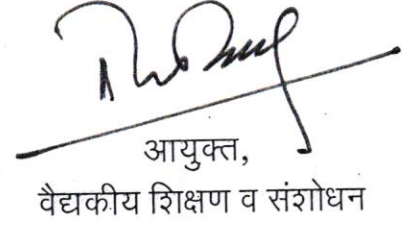 आयुक्त,
वैद्यकीय शिक्षण व संशोधन